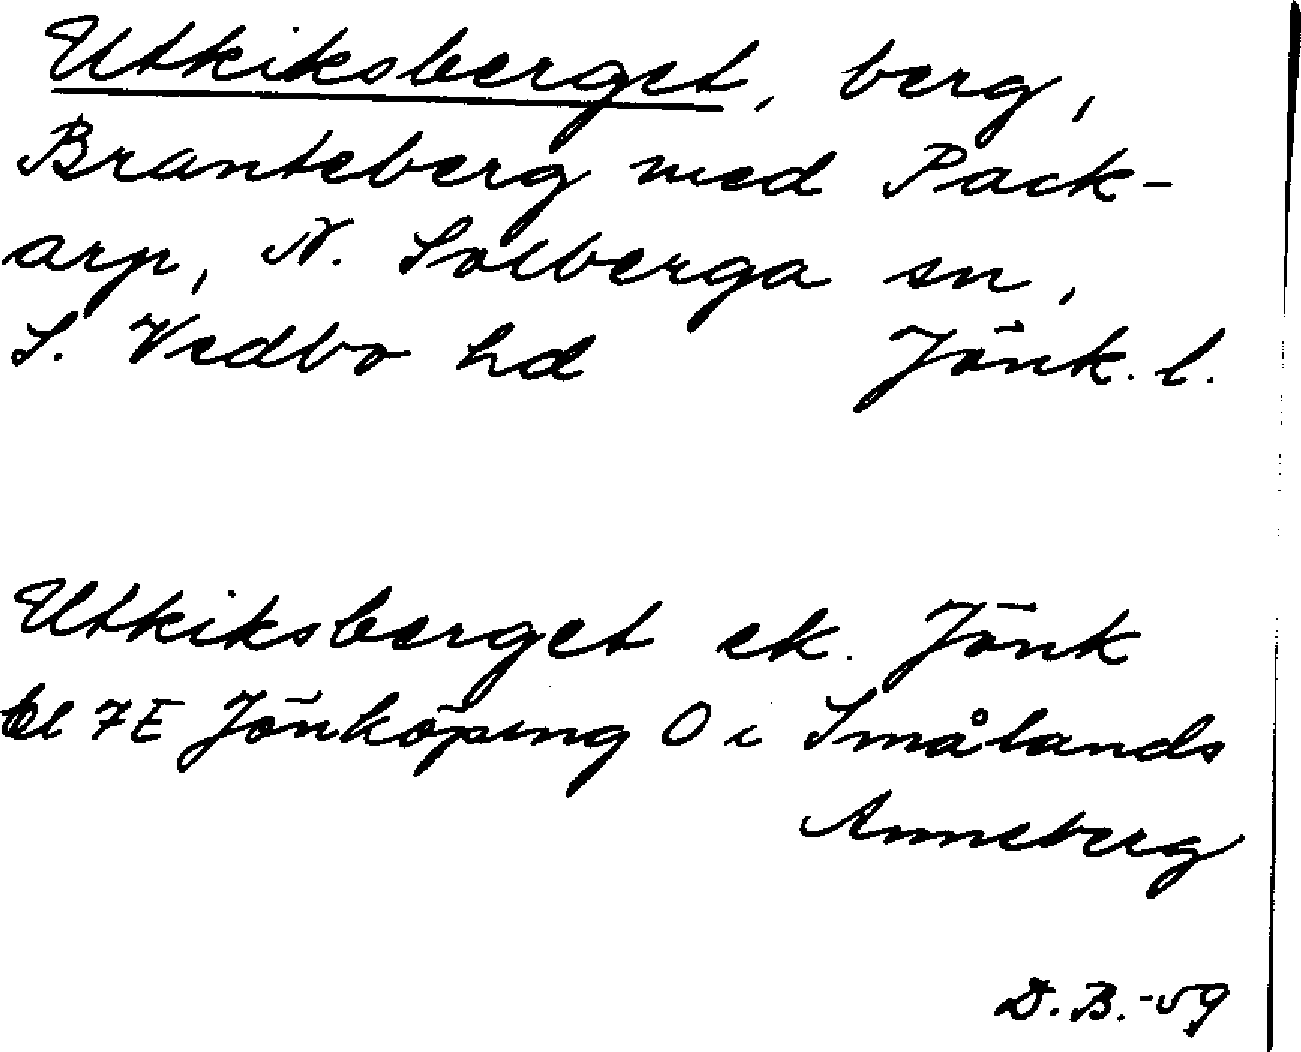 Utkiksberget, berg,
Branteberg med Pack-
arp, N. Solberga sn,
S. Vedbo hd Jönk. l.
Utkiksberget ek. Jönk
bl 7E Jönköping O i Smålands
Anneberg
D.B.-59